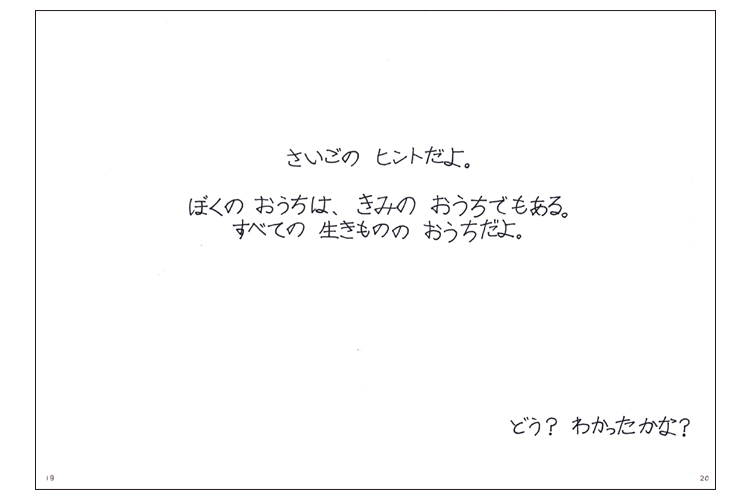 さいごの ヒントだよ。
ぼくの おうちは、きみの おうちでもある。
すべての 生きものの おうちだよ。
どう? わかったかな?
19
20